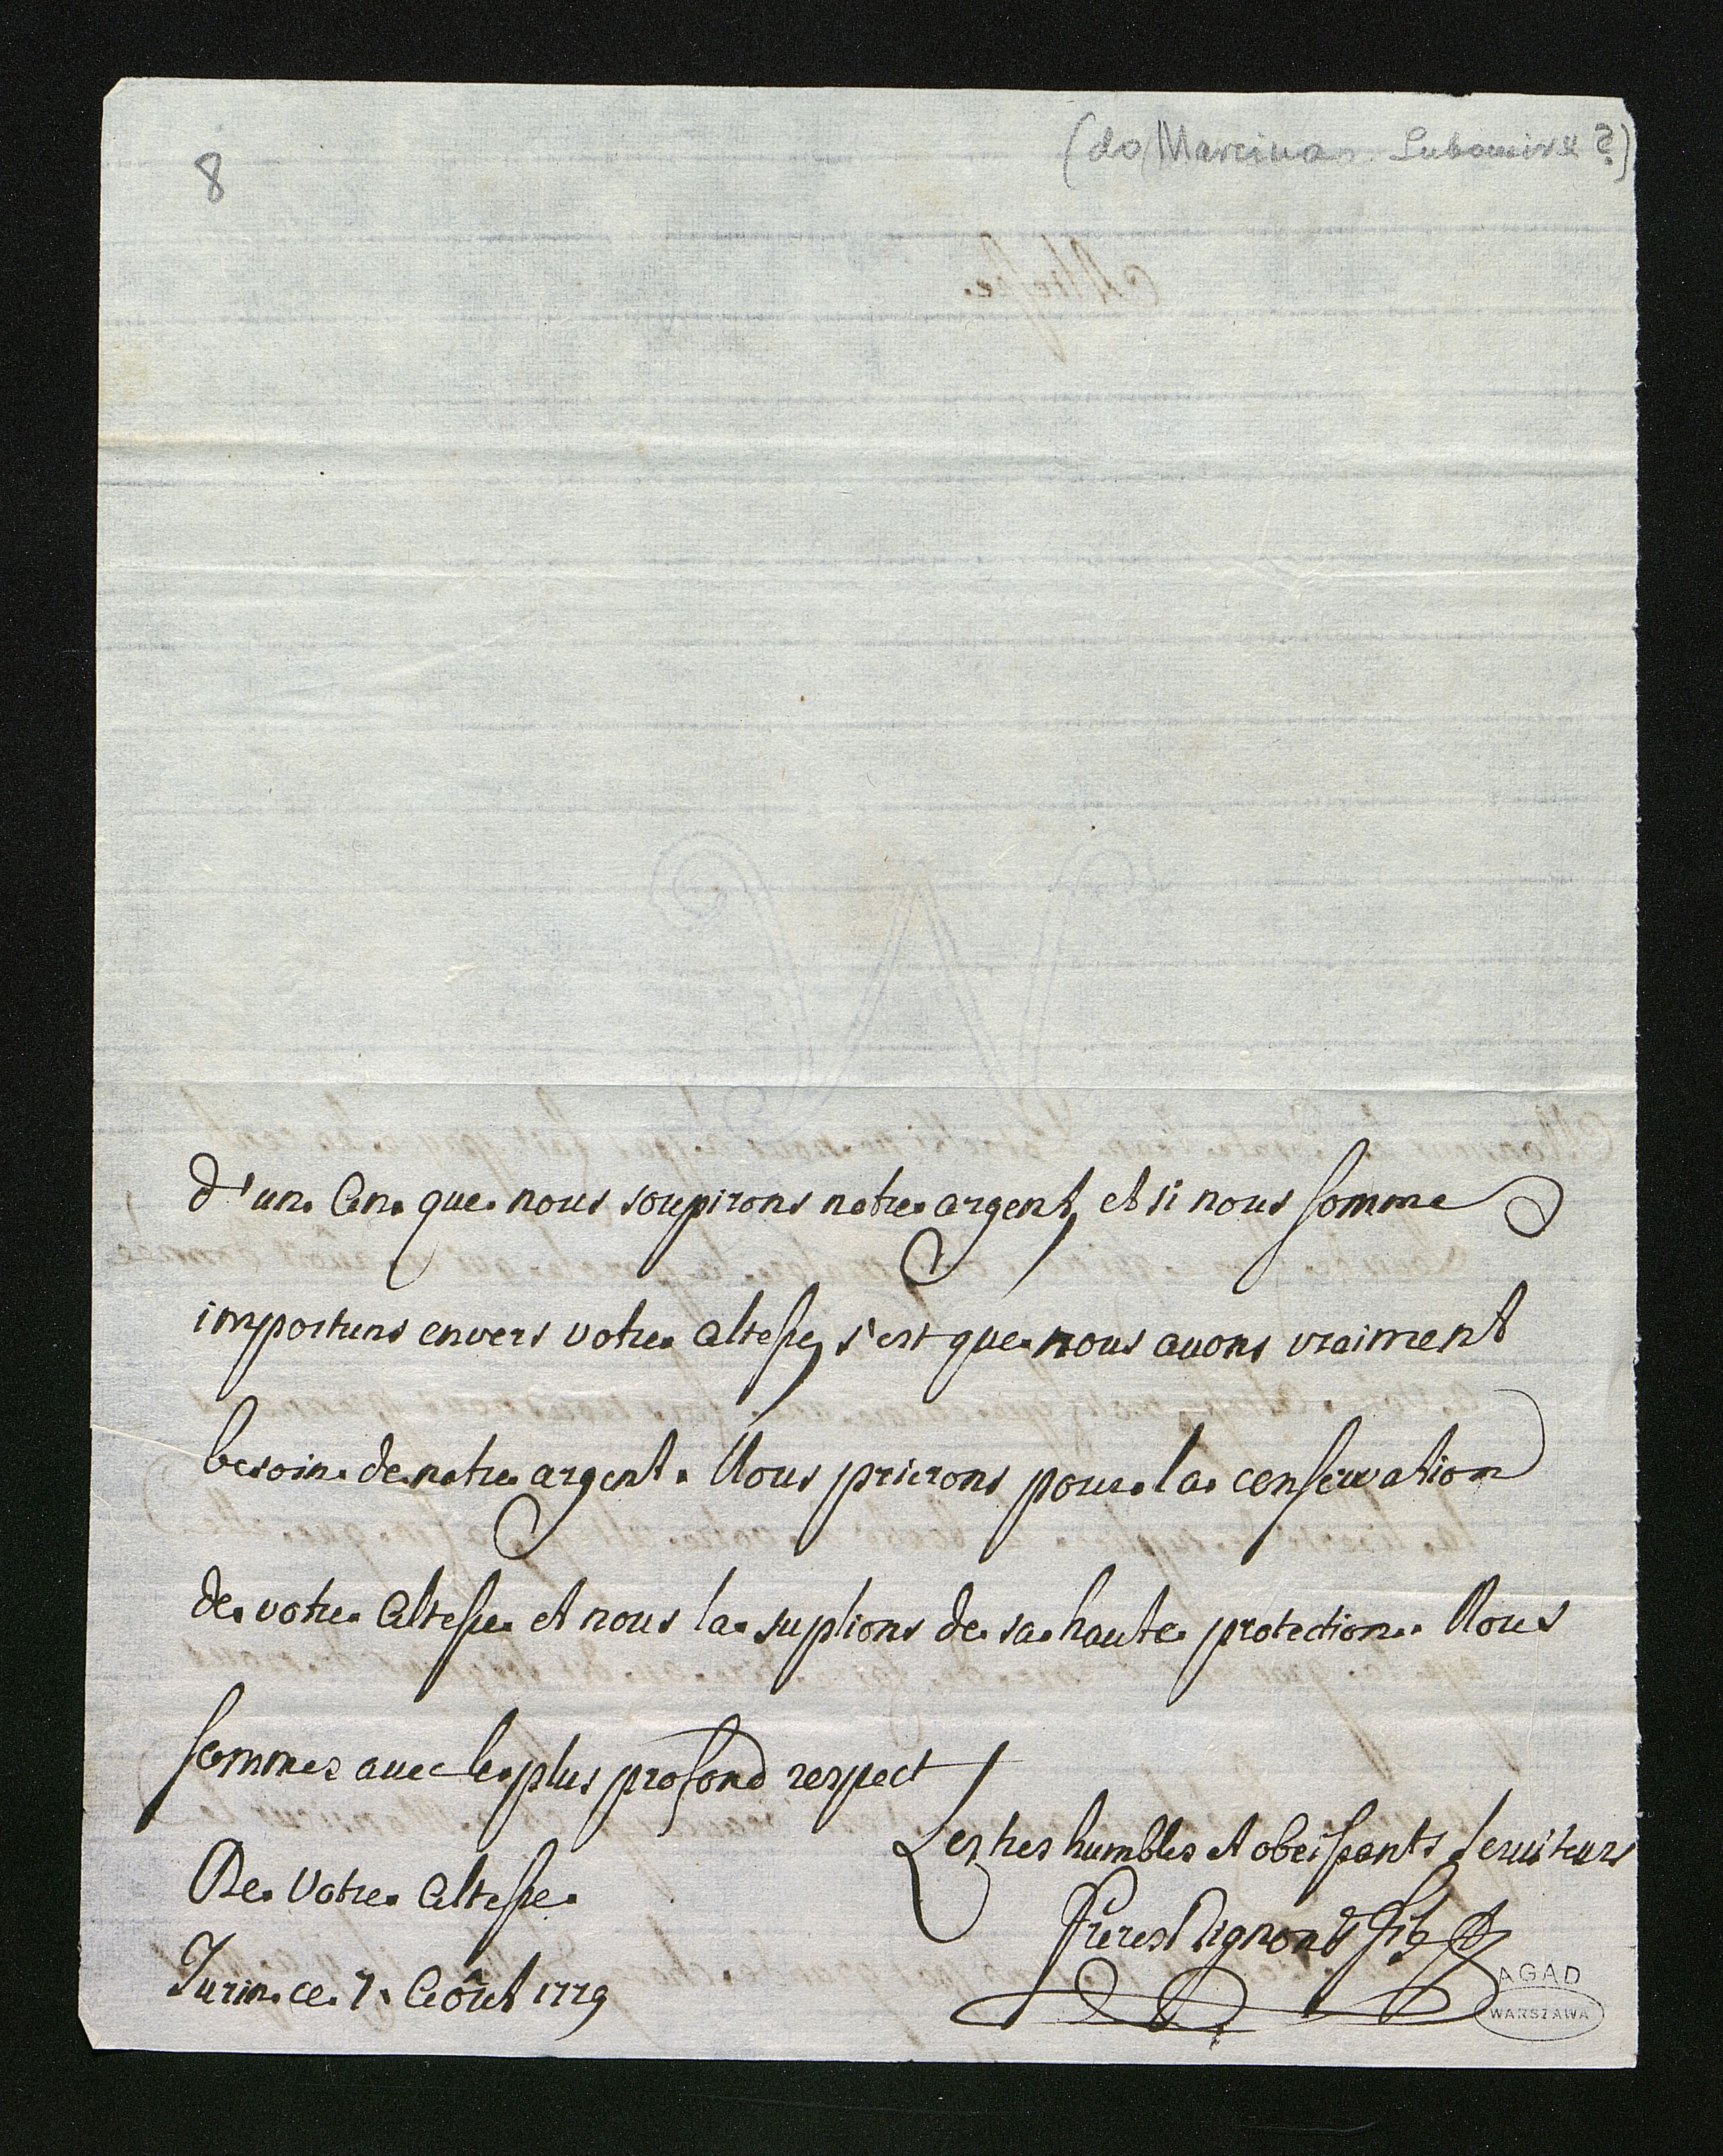 8
(do Marcina Lubomirsk ?)
d'un An que nous soupirons notre argent, et si nous somme
importuns envers votre Altesse, s'est que nous avons vraiment
besoin de notre argent. Nous prierons pour la conservation
de votre Altesse et nous la suplions de sa haute protection. Nous
sommes avec le plus profond respect
Les tres humbles et obeissants serviteurs
De Votre Altesse
Freres
Turin ce 7. Aôut 1779
AGAD
WARSZAWA